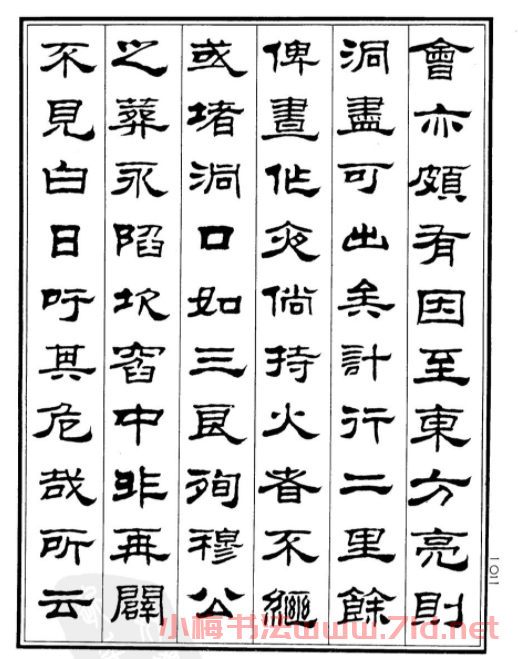 會亦頗有因至東方亮則
洞盡可出矣計行二里餘
俾晝作夜倘持火者不經
或堵洞口如三良殉穆公
之葬永陷坎窞中非再闢
不見白日吁其危哉所云
一〇二
小梅书法